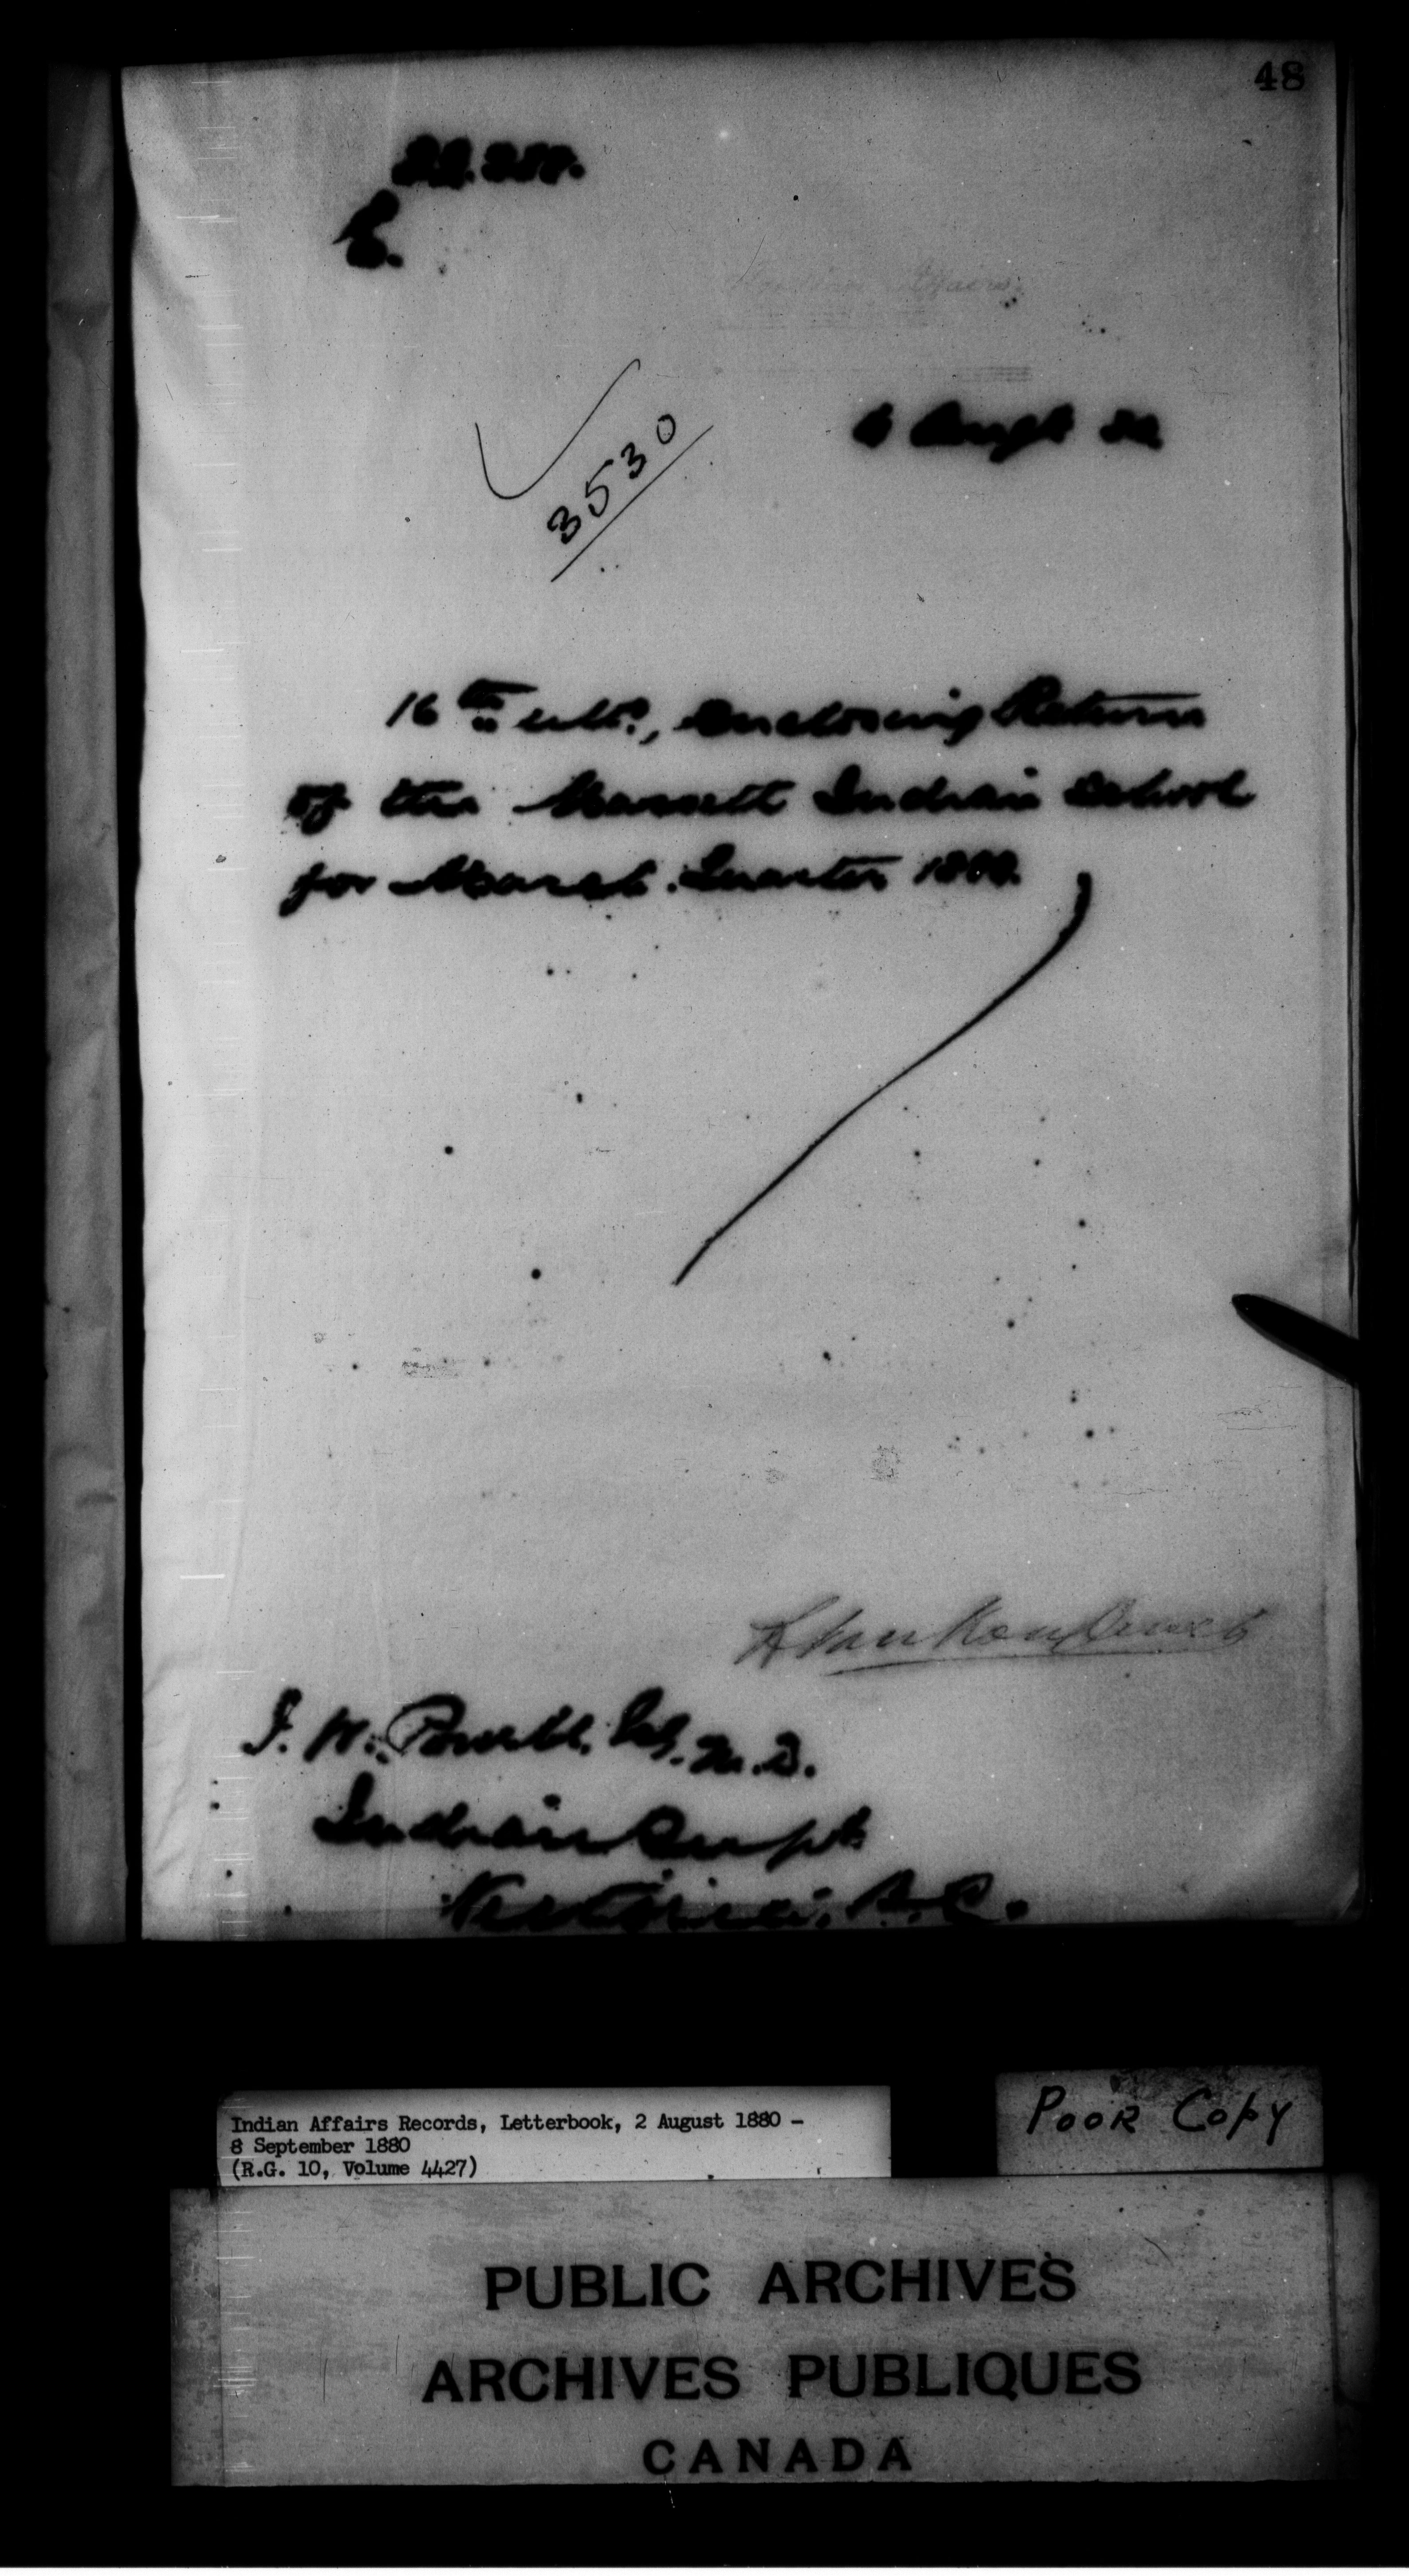 48
E.
Indian Affairs
6 Augt 80
3530
16th ulto., enclosing Return
of the Massett Indian School
for March Quarter 1880.
L VanKoughnet
I. W. Powell, Esq. M.D.
Indian Supt.
Victoria, B.C.
Indian Affairs Records, Letterbook, 2 August 1880 –
8 September 1880
(R.G. 10, Volume 4427)
POOR COPY
PUBLIC ARCHIVES
ARCHIVES PUBLIQUES
CANADA